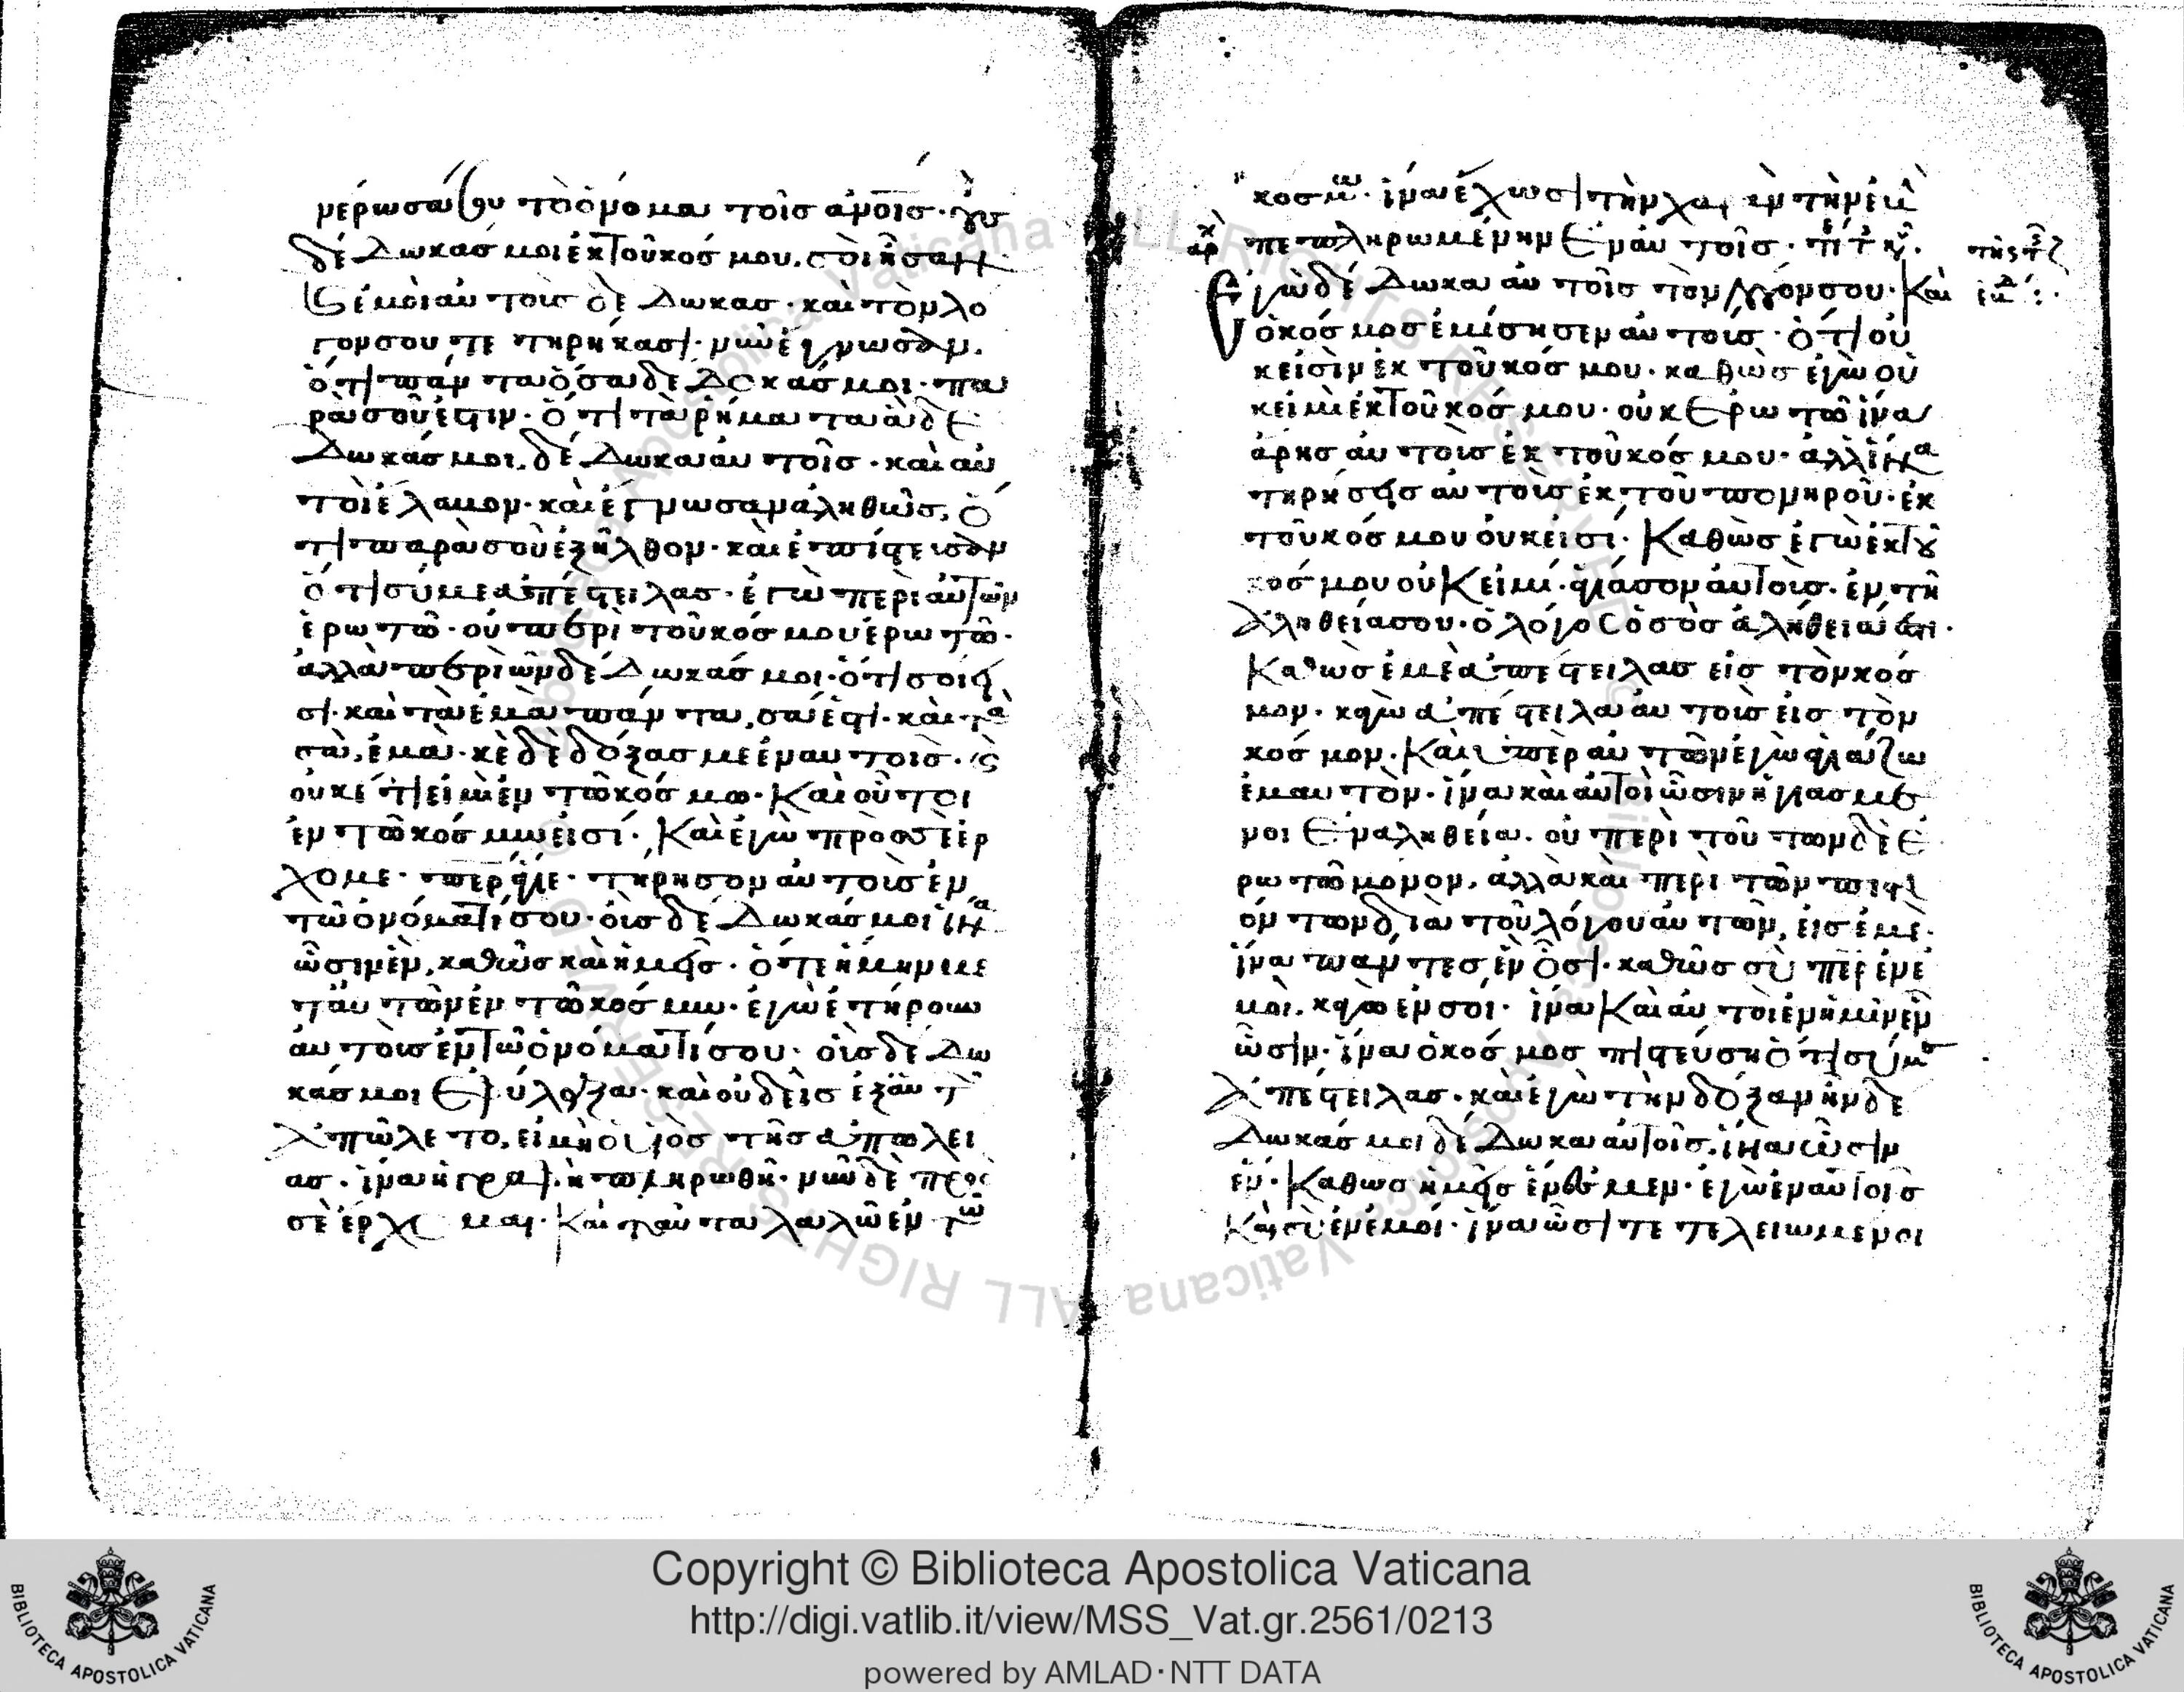 νέρωσά σου τὸ ὄνομα τοῖς ἀνοῖς· οὓς
δέδωκάς μοι ἐκ τοῦ κόσμου. σοὶ ἦσαν
κὲ ἐμοὶ αὐτοὺς δέδωκας· καὶ τὸν λό
γον σου τετηρήκασι· νῦν ἔγνωσαν.
ὅτι πάντα ὅσα δέδοκάς μοι· πα
ρὰ σοῦ ἐστιν· ὅτι τὰ ρήματα ἃ δέ
δωκάς μοι. δέδωκα αὐτοῖς· καὶ αὐ
τοὶ ἔλαβον· καὶ ἔγνωσαν ἀληθῶς, ὅ
τι παρὰ σοῦ ἐξῆλθον· καὶ ἐπίστευσαν
ὅτι σύ με ἀπέστειλας· ἐγὼ περὶ αὐτῶν
ἐρωτῶ· οὐ περὶ τοῦ κόσμου ἐρωτῶ·
ἀλλὰ περὶ ὧν δέδωκάς μοι· ὅτι σοί εἰ
σι· καὶ τὰ ἐμὰ πάντα, σά ἐστι· καὶ τὰ
σὰ, ἐμὰ· κὲ δεδόξασμε ἐν αὐτοῖς· κ
οὐκέτι εἰμὶ ἐν τῶ κόσμω· Καὶ οὗτοι
ἐν τῶ κόσμω εἰσί· Καὶ ἐγὼ πρὸς σὲ ἔρ
χομε· περ ἅγιε· τήρησον αὐτοὺς ἐν
τῶ ὀνόματί σου· οἷς δέδωκάς μοι ἵνα
ὦσιν ἓν, καθὼς καὶ ἡμεῖς· ὅτε ἤμην με
τ' αὐτῶν ἐν τῶ κόσμω· ἐγὼ ἐτήρουν
αὐτοὺς ἐν τῶ ὀνόματί σου· οἷς δέδω
κάς μοι ἐφύλαξα· καὶ οὐδεὶς ἐξ αὐτῶν
ἀπώλετο, εἰ μὴ ὁ υἱὸς τῆς ἀπωλεί
ας· ἵνα ἡ γραφὴ πληρωθῆ· νῦν δὲ πρὸς
σὲ ἔρχομαι· Καὶ ταῦτα λαλῶ ἐν τῶ
κόσμω· ἵνα ἔχωσι τὴν χαρ ἐν τὴν ἐμ
πεπληρωμένην ἐν αὐτοῖς·
Ἐγὼ δέδωκα αὐτοῖς τὸν λόγον σου· Καὶ
ὁ κόσμος ἐμίσησεν αὐτούς· ὅτι οὐ
κ εἰσὶν ἐκ τοῦ κόσμου· καθὼς ἐγὼ οὐ
κ εἰμὶ ἐκ τοῦ κόσμου· οὐκ ἐρωτῶ ἵνα
ἄρης αὐτοὺς ἐκ τοῦ κόσμου· ἀλλ' ἵνα
τηρήσης αὐτοὺς ἐκ τοῦ πονηροῦ· ἐκ
τοῦ κόσμου οὐκ εἰσί· Καθὼς ἐγὼ ἐκ τοῦ
κόσμου οὐκ εἰμί· ἁγίασον αὐτούς· ἐν τῆ
ἀληθεία σου· ὁ λόγος ὁ σὸς ἀλήθειά ἐστι·
Καθὼς ἐμὲ ἀπέστειλας εἰς τὸν κόσ
μον· κἀγὼ ἀπέστειλα αὐτοὺς εἰς τὸν
κόσμον· Καὶ ὑπὲρ αὐτῶν ἐγὼ ἁγιάζω
ἐμαυτόν· ἵνα καὶ αὐτοὶ ὦσιν ἡγιασμέ
νοι ἐν ἀληθεία· οὐ περὶ τούτων δὲ ἐ
ρωτῶ μόνον, ἀλλὰ καὶ περὶ τῶν πιστευ
όντων διὰ τοῦ λόγου αὐτῶν, εἰς ἐμέ·
ἵνα πάντες ἓν ὦσι· καθὼς σὺ περ ἐν ἐ
μοί. κἀγὼ ἐν σοί· ἵνα Καὶ αὐτοὶ ἐν ἡμῖν ἓν
ὦσιν· ἵνα ὁ κόσμος πιστεύση ὅτι σύ με
ἀπέστειλας· καὶ ἐγὼ τὴν δόξαν ἣν δέ
δωκάς μοι δέδωκα αὐτοῖς. ἵνα ὦσιν
ἕν· Καθὼς ἡμεῖς ἕν ἐσμεν· ἐγὼ ἐν αὐτοῖς
Καὶ σὺ ἐν ἐμοί· ἵνα ὦσι τετελειωμένοι
Copyright © Biblioteca Apostolica Vaticana
http://digi.vatlib.it/view/MSS_Vat.gr.2561/0213
powered by AMLAD·NTT DATA
BIBLIOTECA APOSTOLICA VATICANA
BIBLIOTECA APOSTOLICA VATICANA